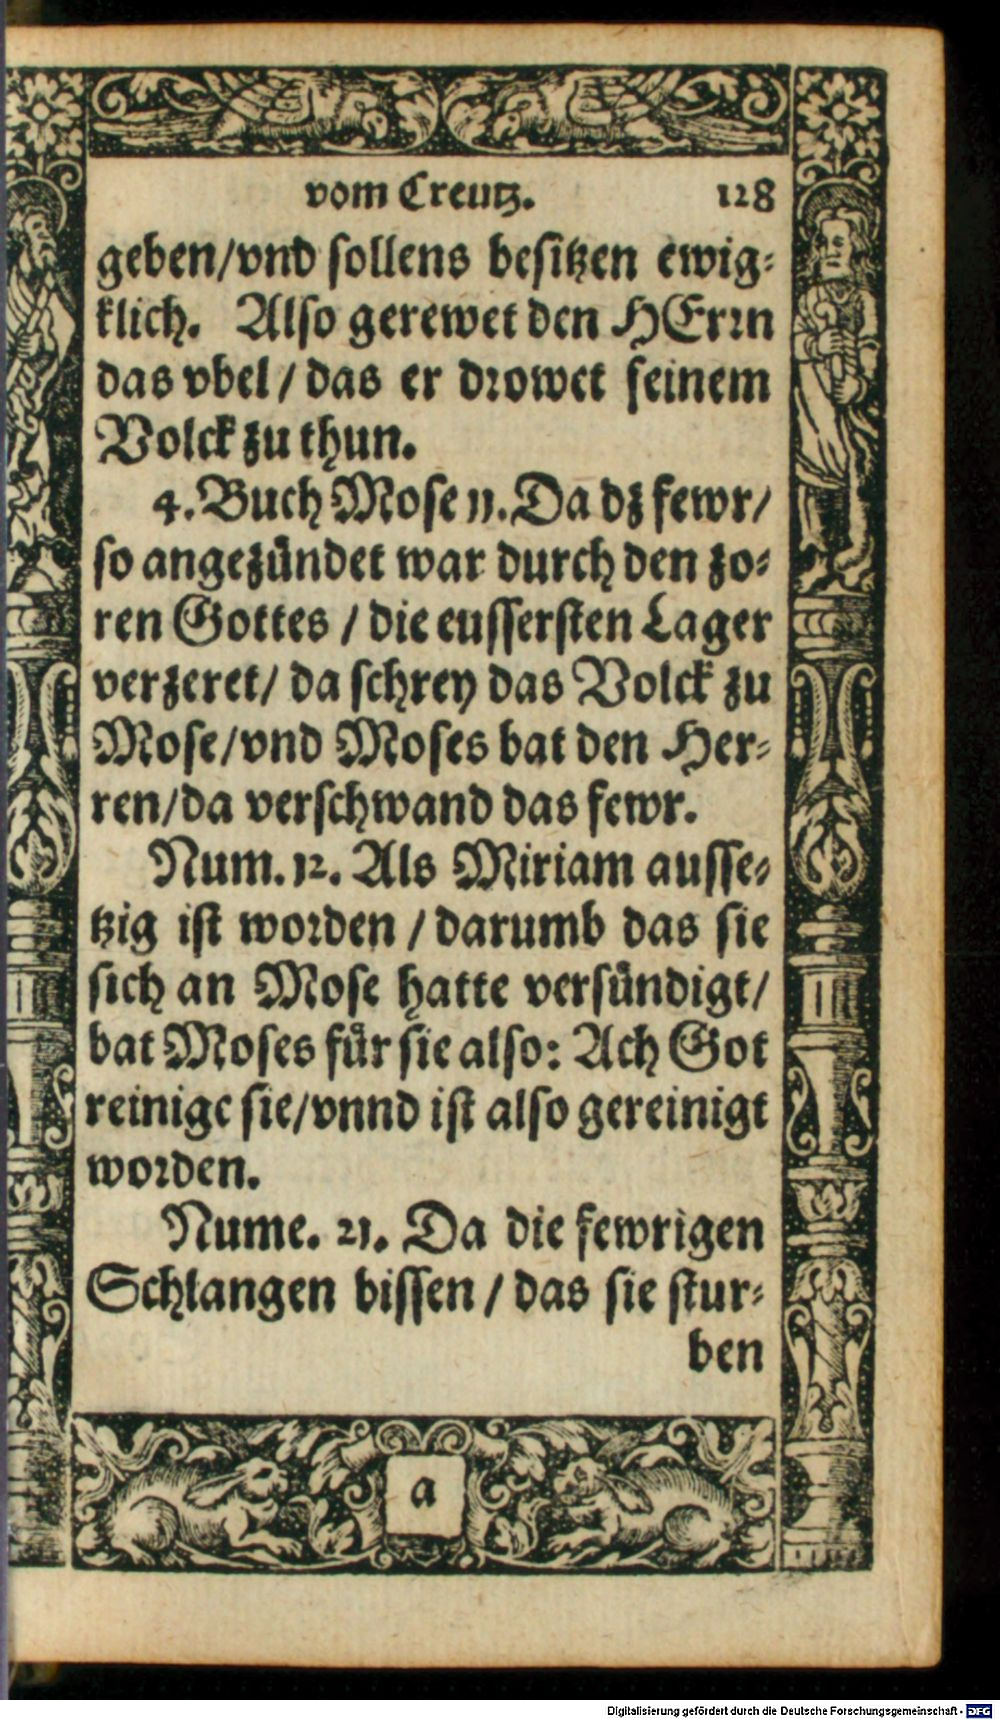 vom Creutz. 128
geben/vnd sollens besitzen ewig-
klich. Also gerewet den HErrn
das vbel / das er drowet seinem
Volck zu thun.
4. Buch Mose 11. Da dz fewr/
so angezündet war durch den zo-
ren Gottes / die eussersten Lager
verzeret/ da schrey das Volck zu
Mose/vnd Moses bat den Her-
ren/da verschwand das fewr.
Num. 12. Als Miriam ausse-
tzig ist worden / darumb das sie
sich an Mose hatte versündigt/
bat Moses für sie also: Ach Got
reinige sie/vnnd ist also gereinigt
worden.
Nume. 21. Da die fewrigen
Schlangen bissen / das sie stur-
ben
a
Digitalisierung gefördert durch die Deutsche Forschungsgemeinschaft - DFG